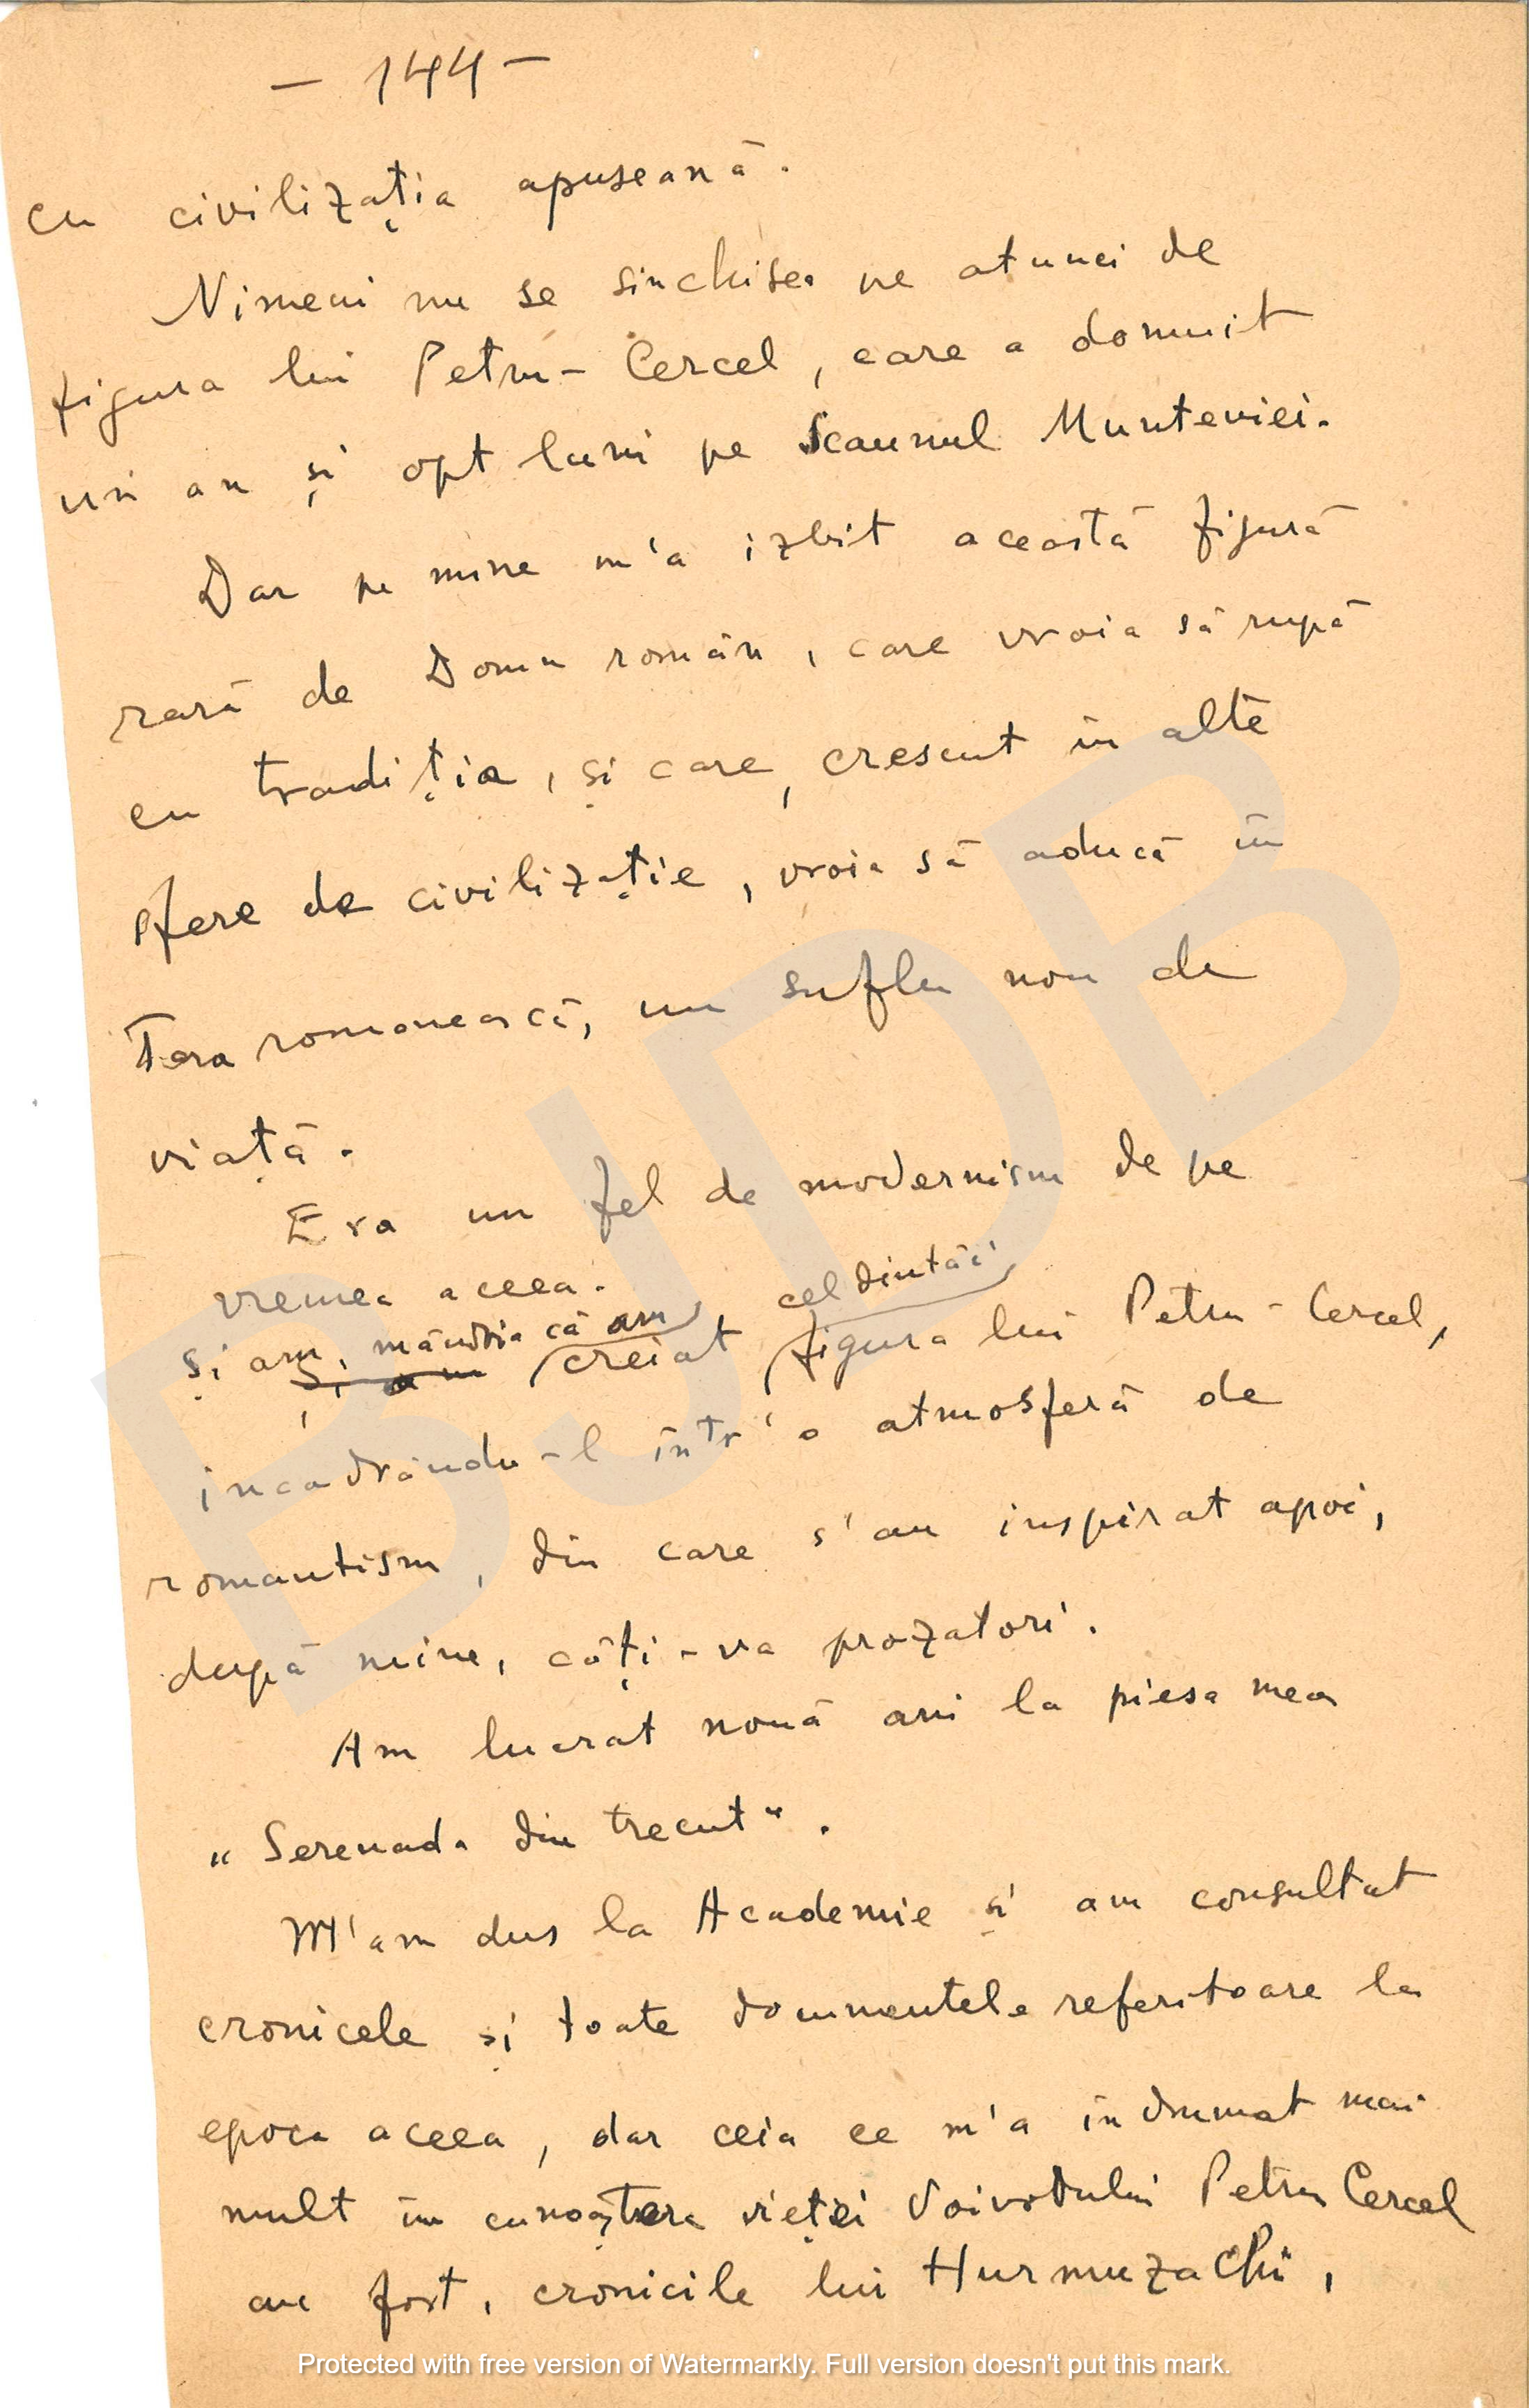 - 144 -
cu civilizația apuseană.
Nimeni nu se sinchisea pe atunci de
figura lui Petru-Cercel, care a domnit
un an și opt luni pe Scaunul Munteniei.
Dar pe mine m'a izbit această figură
rară de Domn român, care vroia să rupă
cu tradiția, și care, crescut în alte
sfere de civilizație, vroia să aducă în
Țara românească, un suflu nou de
viață.
Era un fel de modernism de pe
vremea aceea.
cel dintâi
și am, mândria că am
și am creiat figura lui Petru-Cercel,
încadrându-l într'o atmosferă de
romantism, din care s'au inspirat apoi,
după mine, câți-va prozatori.
Am lucrat nouă ani la piesa mea
„Serenada din trecut".
M'am dus la Academie și am consultat
cronicele și toate documentele referitoare la
epoca aceea, dar ceia ce m'a îndrumat mai
mult în cunoașterea vieței Voivodului Petru Cercel
au fost, cronicile lui Hurmuzachi,
BJDB
Protected with free version of Watermarkly. Full version doesn't put this mark.